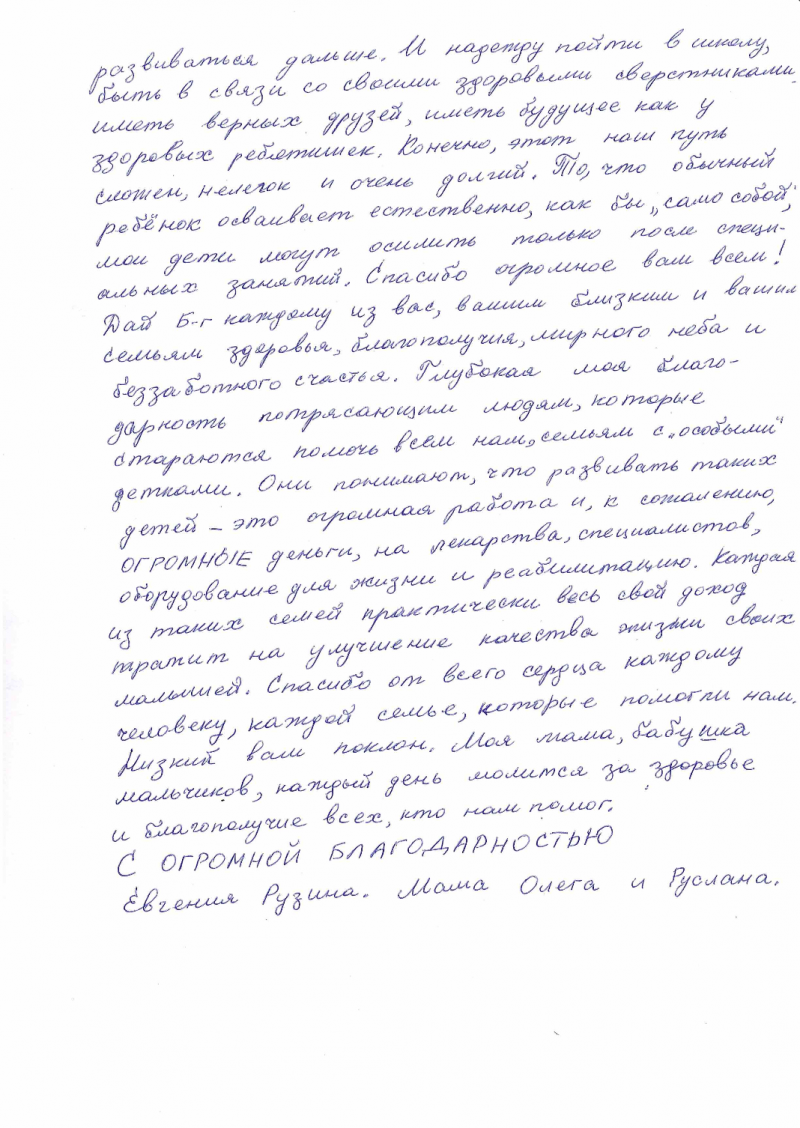 развиваться дальше. И надежду пойти в школу,
быть в связи со своими здоровыми сверстниками.
иметь верных друзей, иметь будущее как у
здоровых ребятишек. Конечно, этот наш путь
сложен, нелегок и очень долгий. То, что обычный
ребёнок осваивает естественно, как бы „само собой,"
мои дети могут осилить только после специ-
альных занятий. Спасибо огромное вам всем!
Дай Б-г каждому из вас, вашим близким и вашим
семьям здоровья, благополучия, мирного неба и
беззаботного счастья. Глубокая моя благо-
дарность потрясающим людям, которые
стараются помочь всем нам, семьям с „особыми"
детками. Они понимают, что развивать таких
детей – это огромная работа и, к сожалению,
ОГРОМНЫЕ деньги, на лекарства, специалистов,
оборудование для жизни и реабилитацию. Каждая
из таких семей практически весь свой доход
тратит на улучшение качества жизни своих
малышей. Спасибо от всего сердца каждому
человеку, каждой семье, которые помогли нам.
Низкий вам поклон. Моя мама, бабушка
мальчиков, каждый день молится за здоровье
и благополучие всех, кто нам помог.
С ОГРОМНОЙ БЛАГОДАРНОСТЬЮ
Евгения Рузина. Мама Олега и Руслана.